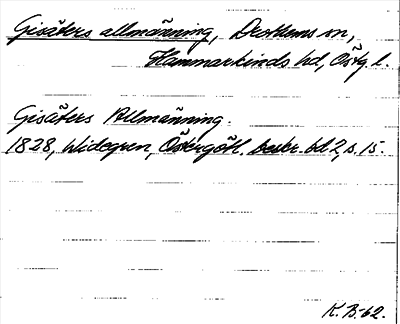 Gisäters allmänning, Drothems sn,
Hammarkinds hd, Östg. l.
Gisäters Allmänning.
1828, Widegren, Östergötl. beskr. bd 2, s. 15.
K. B-62.